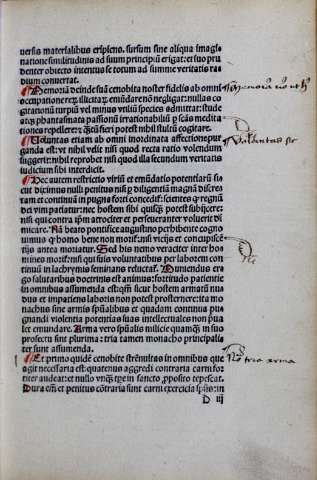 uersis materialibus eripiens. sursum sine aliqua imagi
natione similitudinis ad suum principiũ erigat: et suo pru
denter obiecto intentus se totum ad summe veritatis ra
dium conuertat.
¶ Memoriã deinde suã cenobita noster fidelis ab omni
occupatione reꝝ illicitaꝝ emũdare nõ negligat: nullas co
gitationũ turpiũ vel minus vtiliũ species admittat: stude
atq̃ phantasmata passionũ irrationabiliũ ꝑ scãs medita
tiones repellere: ꝙ̃tũ fieri potest nihil stultũ cogitare.
¶ Voluntas etiam ab omni inordinata affectione pur
ganda est: vt nihil velit nisi quod recta ratio volendum
suggerit: nihil reprobet nisi quod illa secundum veritatis
iudicium sibi interdicit.
¶ Hec autem restrictio viriũ et emũdatio potentiarũ si
cut diximus nulli penitus nisi ꝑ diligentiã magnã discre
tam et continuã in pugna forti concedit̃: scientes ꝙ regnũ
dei vim patiatur: nec hostem sibi quisq̃ potest subijcere:
nisi qui contra ip̃m atrociter et perseueranter voluerit di
micare. Nã beato pontifice augustino perhibente cogno
uimus ꝙ homo bene non morit̃: nisi vicijs et concupiscẽ
tijs antea moriatur. Sed his nemo veraciter inter ho
mines morit̃: nisi qui suis voluntatibus per laborem con
tinuũ in lachrymis seminans reluctat̃. Muniendus er
go salutaribus doctrinis est animus: fortitudo patiẽtie
in omnibus assumenda est: ꝙ̃ sicut hostem armatũ nu
dus et impatiens laboris non potest prosternere: ita mo
nachus sine armis spũalibus et quadam continua pu
gnandi violentia potentias suas intellectuales non pua
let emundare. Arma vero spũalis milicie quamq̃ in suo
profectu sint plurima: tria tamen monacho principali
ter sunt assumenda.
¶ Et primo quidẽ cenobite strẽnuitas in omnibus que
agit necessaria est: quatenus aggredi contraria carni for
titer audeat: et nullo vnq̃ tpe in sancto ꝓposito tepescat.
Dura em̃ et penitus cõtraria sunt carni exercicia spũs: in
D iij